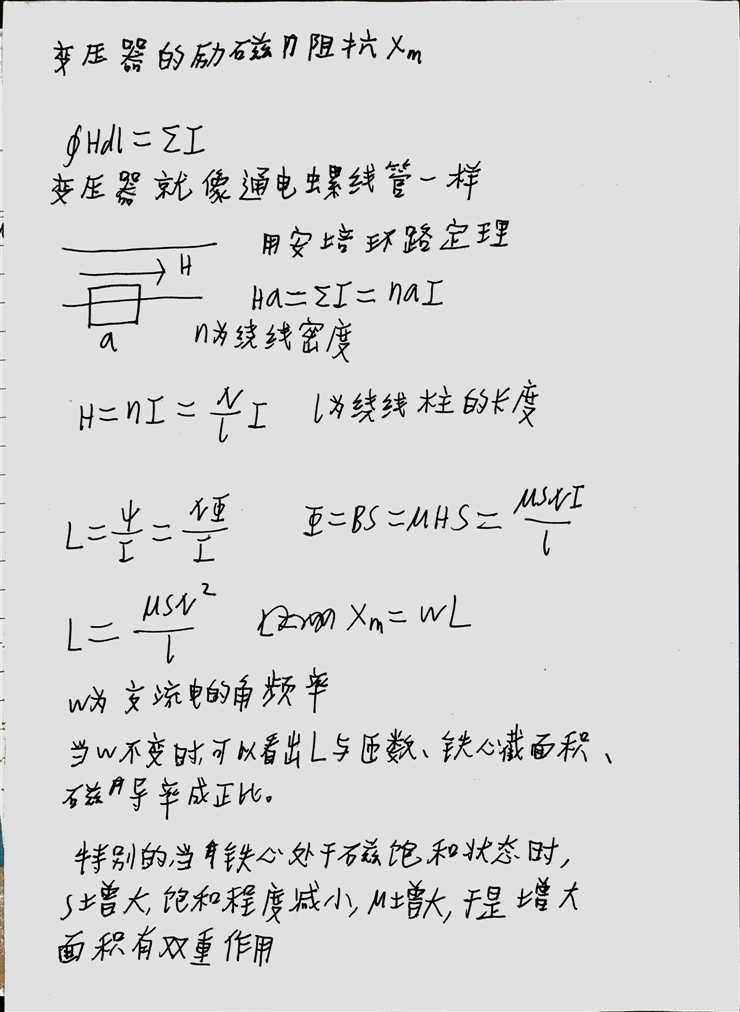 变压器的励磁阻抗 Xm
∮Hdl=ΣI
变压器就像通电螺线管一样
用安培环路定理
H
Ha=ΣI=naI
a
n为绕线密度
H=nI=N/l I l为绕线柱的长度
L=ψ/I=NΦ/I Φ=BS=μHS=μSNI/l
L=μSN²/l Xm=wL
w为交流电的角频率
当w不变时,可以看出L与匝数、铁心截面积、
磁导率成正比。
特别的,当铁心处于磁饱和状态时,
S增大,饱和程度减小,μ增大,于是增大
面积有双重作用